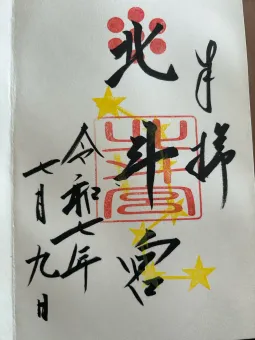 奉拝
北斗宮
令和七年
七月九日